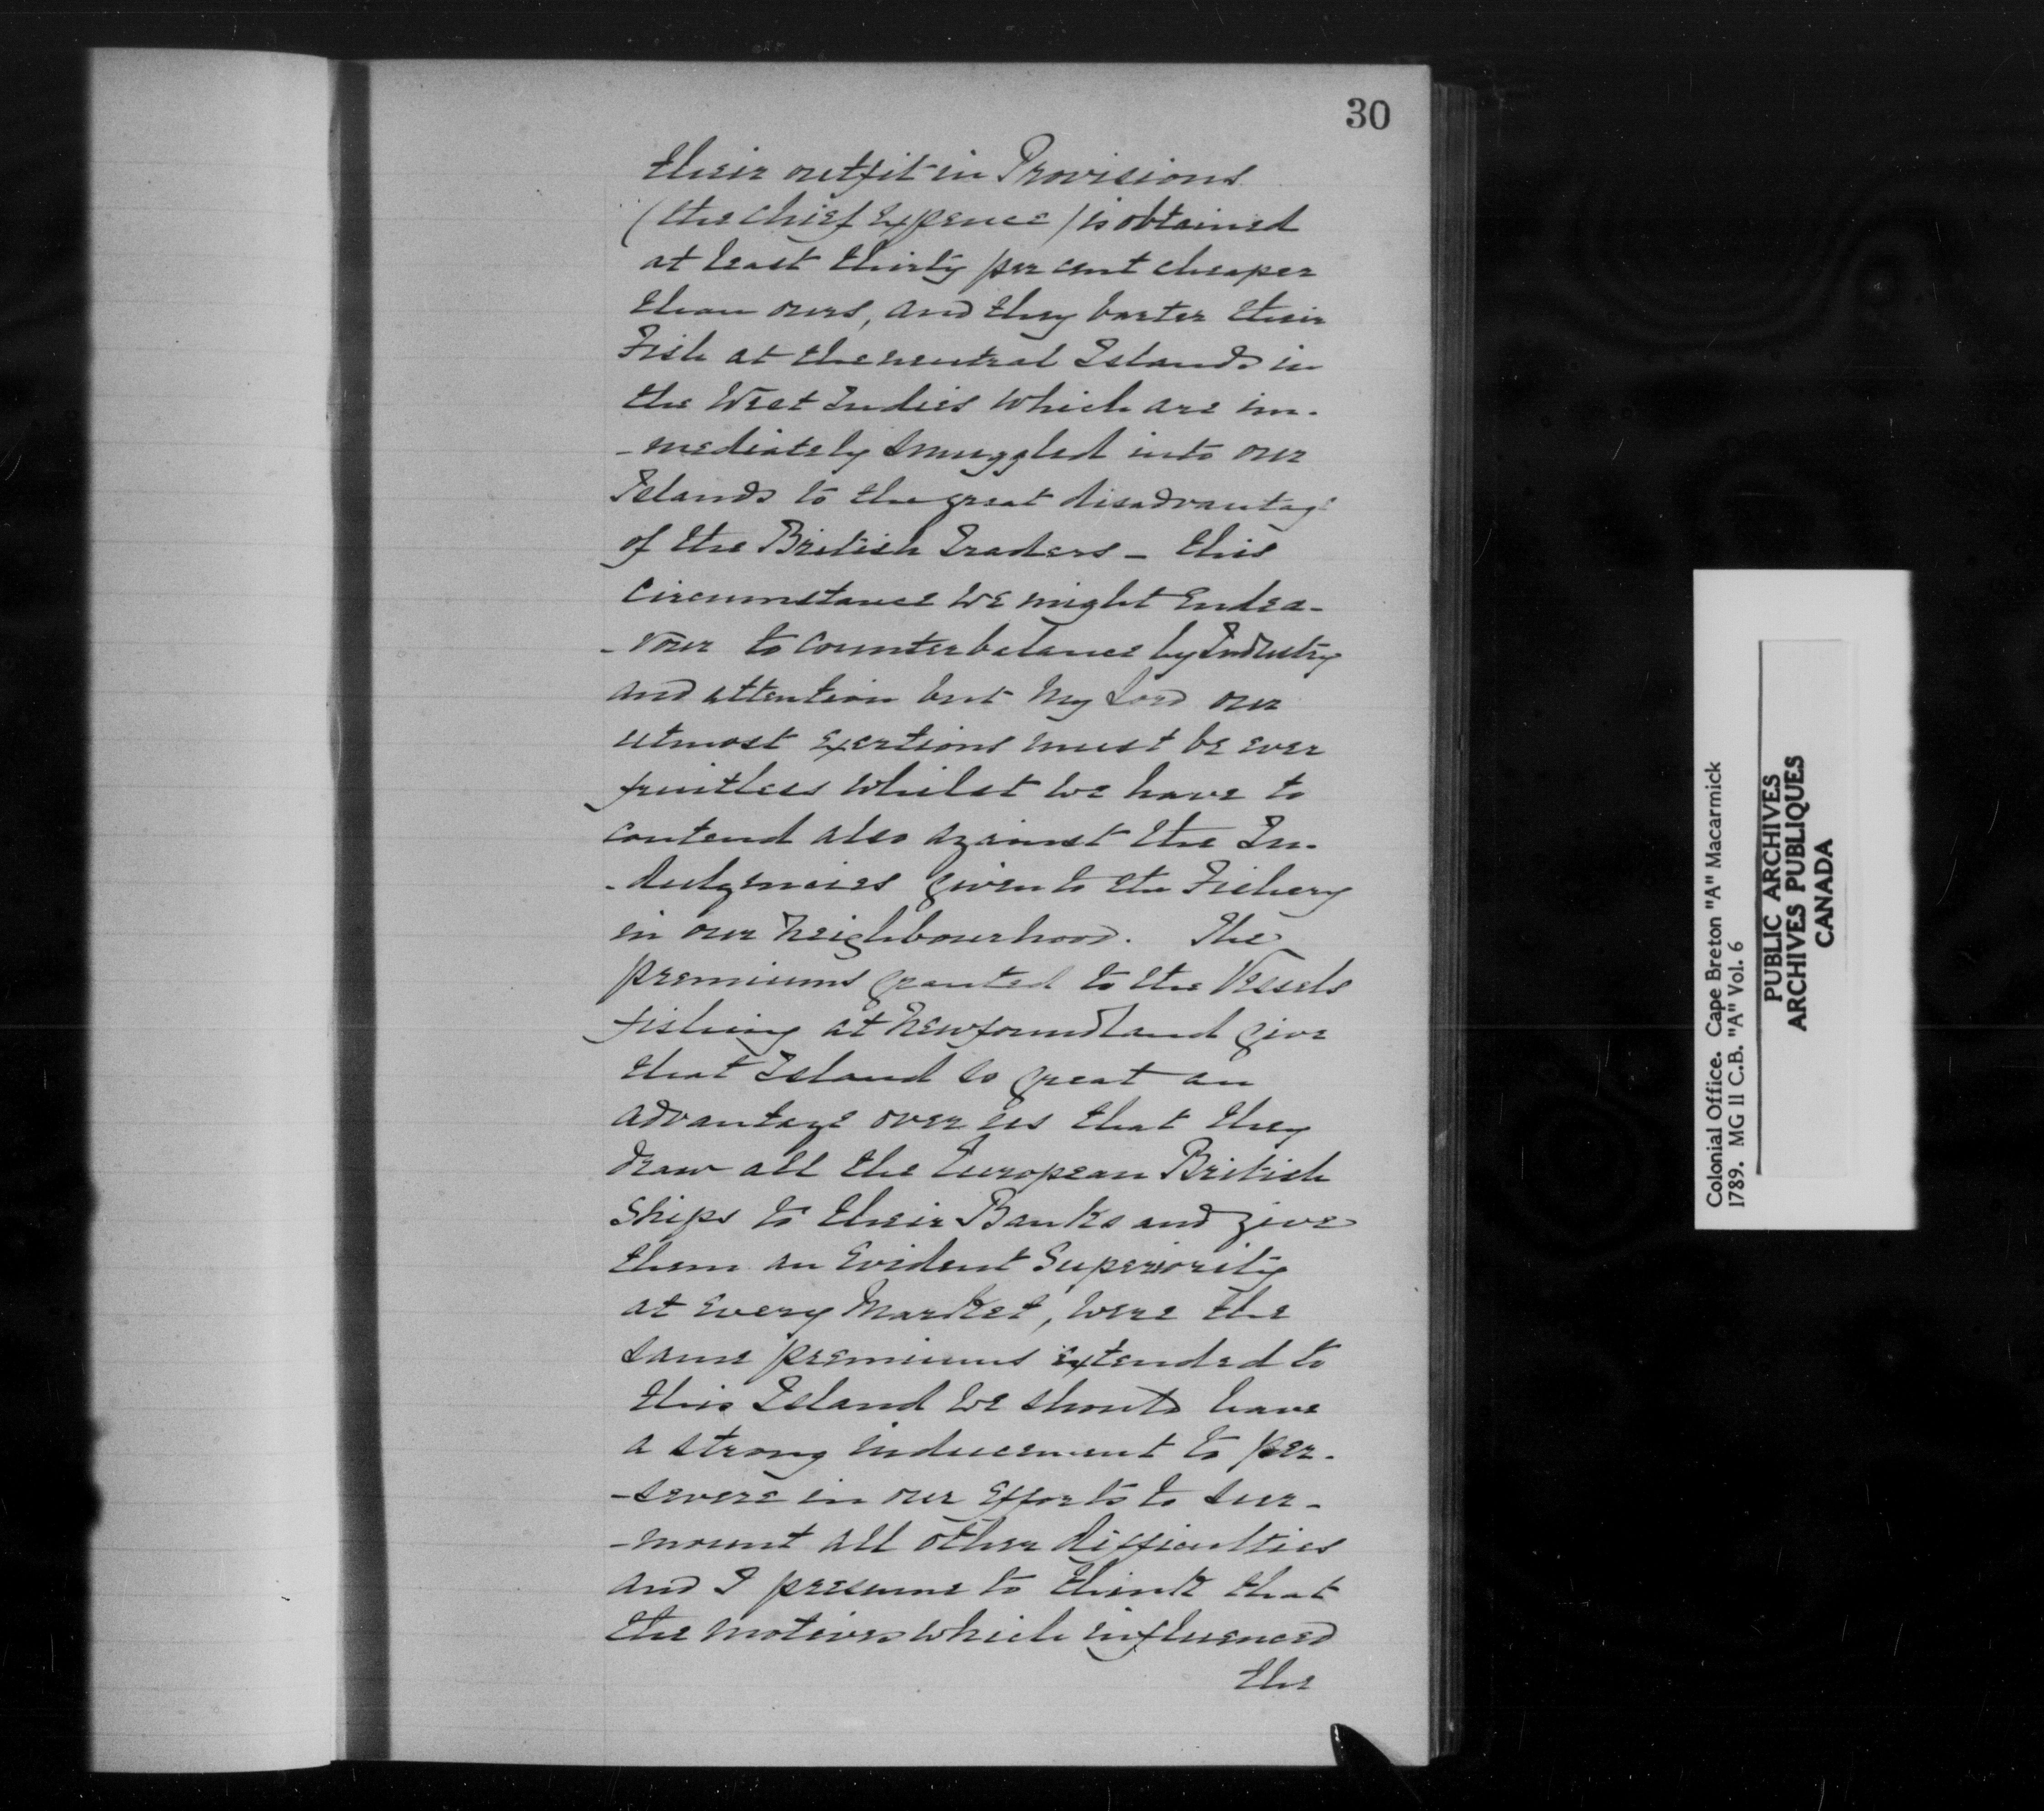 30
their outfit in Provisions
(the chief Expence) is obtained
at least thirty per cent cheaper
than ours, and they barter their
Fish at the neutral Islands in
the West Indies which are im-
-mediately smuggled into our
Islands to the great disadvantage
of the British Traders - this
Circumstance we might Endea-
-vour to Counterbalance by Industry
and attention but My Lord our
utmost Exertions must be ever
fruitless whilst we have to
contend also against the In-
-dulgencies given to the Fishery
in our Neighbourhood. The
premiums granted to the Vessels
fishing at Newfoundland give
that Island so great an
advantage over us that they
draw all the European British
Ships to their Banks and give
them an Evident Superiority
at Every Market, were the
same premiums extended to
this Island we should have
a strong inducement to per-
-severe in our Efforts to sur-
-mount all other difficulties
and I presume to think that
the motives which influenced
the
Colonial Office. Cape Breton "A" Macarmick
1789. MG II C.B. "A" Vol. 6
PUBLIC ARCHIVES
ARCHIVES PUBLIQUES
CANADA